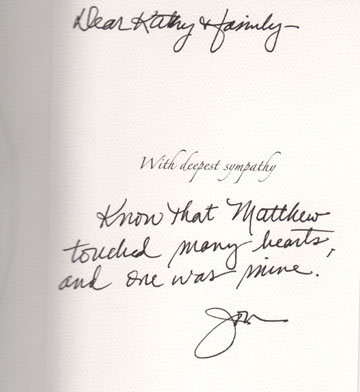 Dear Kathy & family—
With deepest sympathy
Know that Matthew
touched many hearts,
and one was mine.
Jon